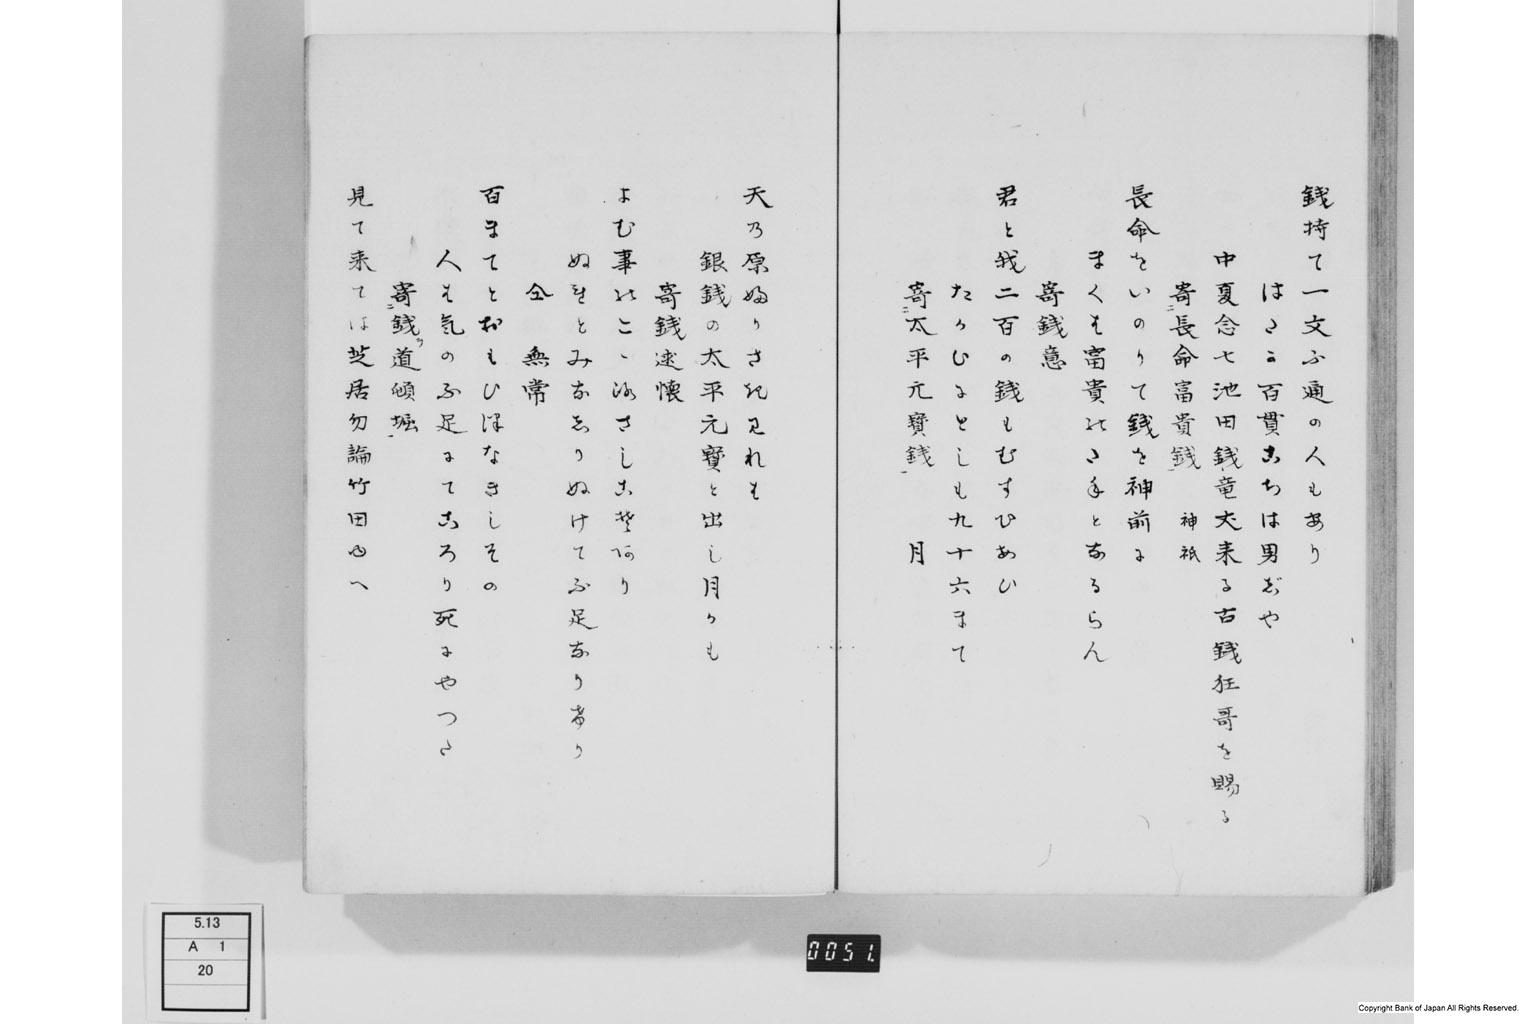 銭持て一文ふ通の人もあり
はたか百貫こちは男ぢや
中夏念七池田銭竜丈来る古銭狂哥を賜る
寄ニ長命富貴銭一 神祇
長命をいのりて銭を神前に
まくも富貴のたねとなるらん
寄銭恋
君と我二百の銭もむすひあひ
たかひにとしも九十六まて
寄ニ太平元寶銭一 月
天乃原ふりさけ見れは
銀銭の太平元寶と出し月かも
寄銭述懐
よむ事のこゝろさしこそあり
ぬれとみなしりぬけてふ足なりけり
仝 無常
百まてとおもひなきしその
人も気のふ足にてころり死にやつた
寄ニ銭ヲ道頓堀一
見て来ては芝居勿論竹田ゆへ
5.13
A 1
20
0051.
Copyright Bank of Japan All Rights Reserved.